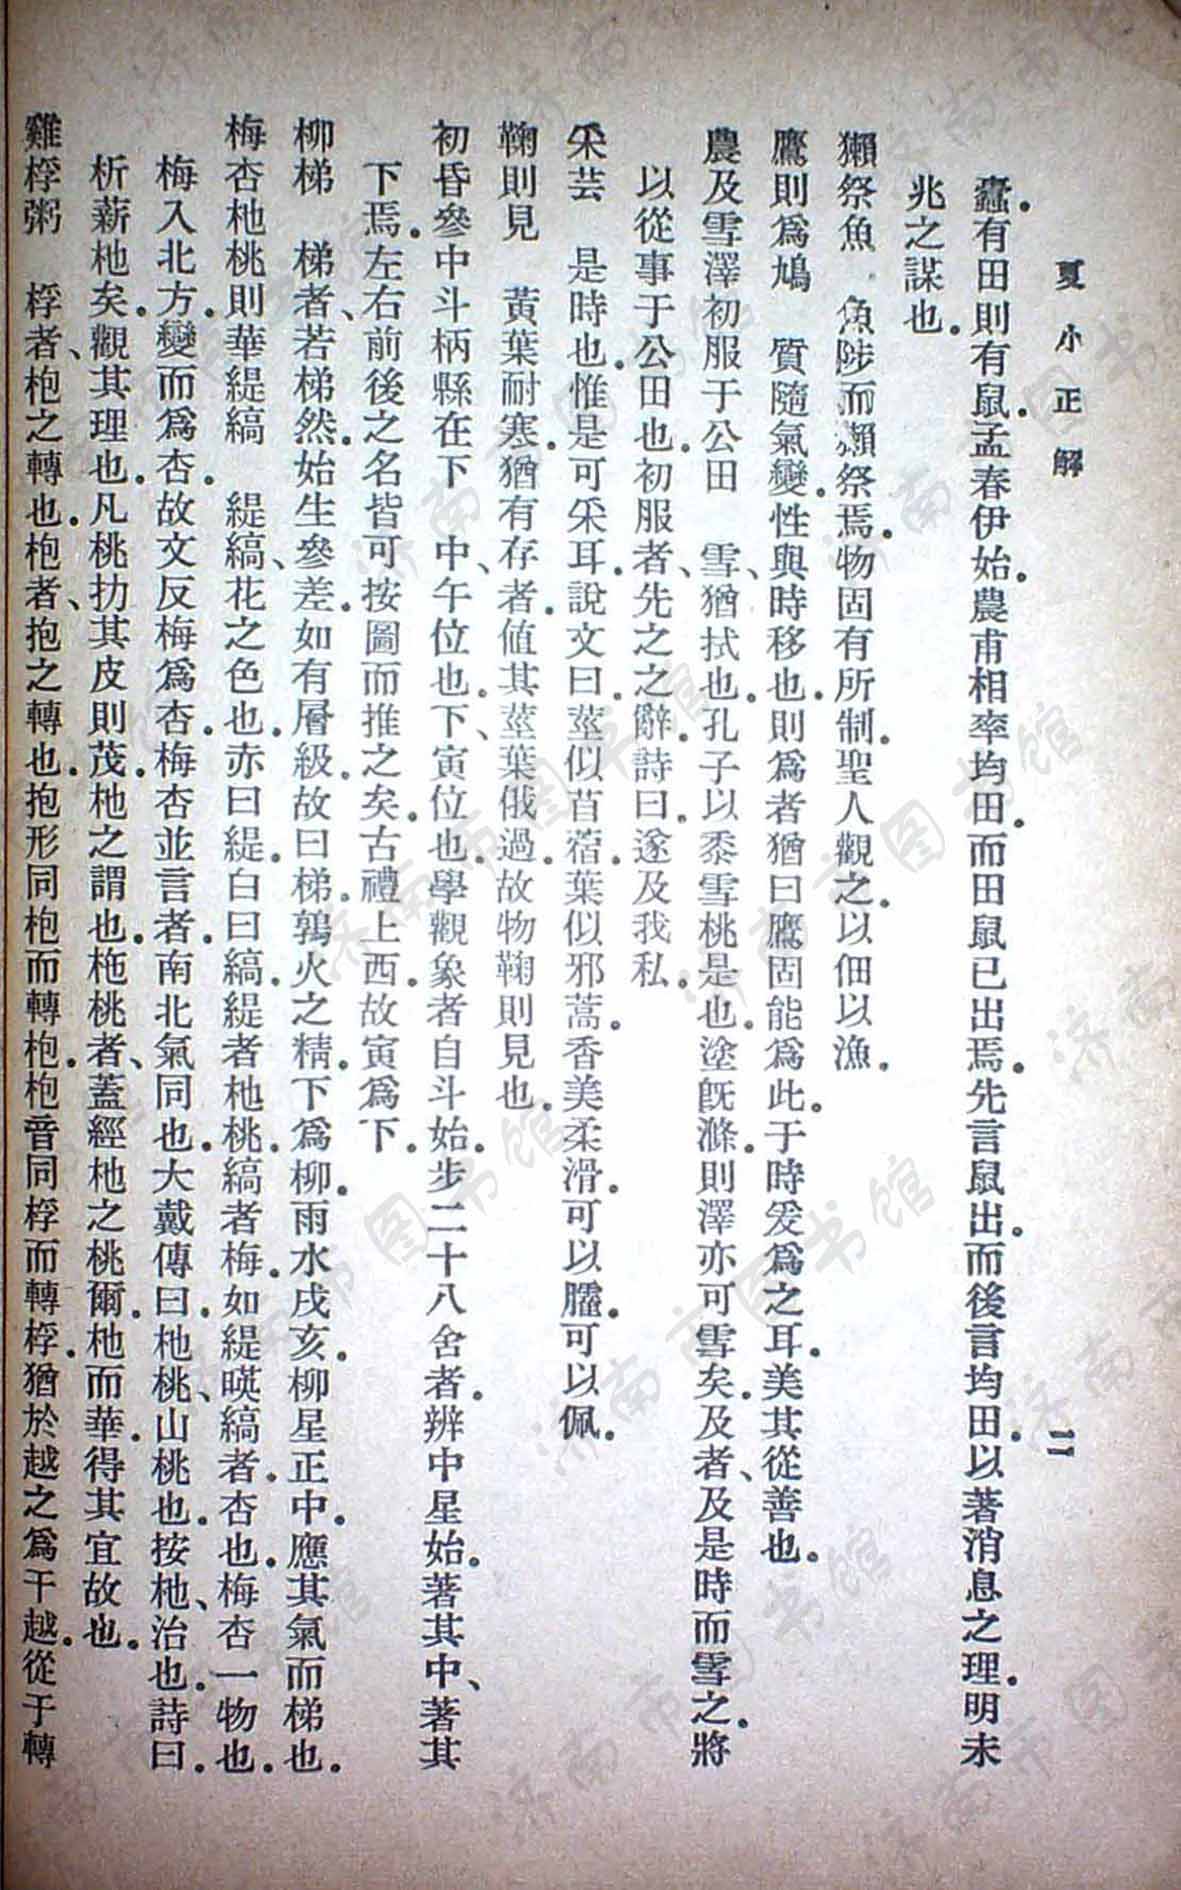 夏小正解
二
蠹。有田則有鼠。孟春伊始。農甫相率均田。而田鼠已出焉。先言鼠出。而後言均田。以著消息之理。明未
兆之謀也。
獺祭魚　魚陟而獺祭焉。物固有所制。聖人觀之。以佃以漁。
鷹則爲鳩　質隨氣變。性與時移也。則爲者猶曰鷹固能爲此。于時爰爲之耳。美其從善也。
農及雪澤初服于公田　雪、猶拭也。孔子以黍雪桃是也。塗旣滌。則澤亦可雪矣。及者、及是時而雪之。將
以從事于公田也。初服者、先之之辭。詩曰。遂及我私。
采芸　是時也。惟是可采耳。說文曰。莖似苜蓿。葉似邪蒿。香美柔滑。可以臛。可以佩。
鞠則見　黃葉耐寒。猶有存者。値其莖葉俄過。故物鞠則見也。
初昏參中斗柄縣在下　中、午位也。下、寅位也。學觀象者自斗始。步二十八舍者。辨中星始。著其中、著其
下焉。左右前後之名皆可按圖而推之矣。古禮上西。故寅爲下。
柳梯　梯者、若梯然。始生參差。如有層級。故曰梯。鶉火之精。下爲柳。雨水戌亥。柳星正中。應其氣而梯也。
梅杏杝桃則華緹縞　緹縞、花之色也。赤曰緹。白曰縞。緹者杝桃。縞者梅。如緹暎縞者。杏也。梅杏一物也。
梅入北方。變而爲杏。故文反梅爲杏。梅杏並言者。南北氣同也。大戴傳曰。杝桃、山桃也。按杝、治也。詩曰。
析薪杝矣。觀其理也。凡桃扐其皮則茂。杝之謂也。柂桃者、蓋經杝之桃爾。杝而華。得其宜故也。
雞桴粥　桴者、枹之轉也。枹者、抱之轉也。抱形同枹而轉枹。枹音同桴而轉桴。猶於越之爲干越。從于轉